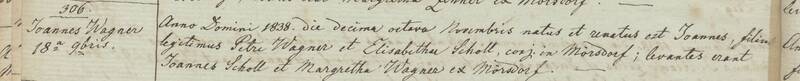 306.
Joannes Wagner
18ª 9bris.
Anno Domini 1838. die decima octava Novembris natus et renatus est Joannes, filius
legitimus Petri Wagner et Elisabetha Scholl, conj. in Mörsdorf; levantes erant
Joannes Scholl et Margretha Wagner ex Mörsdorf.